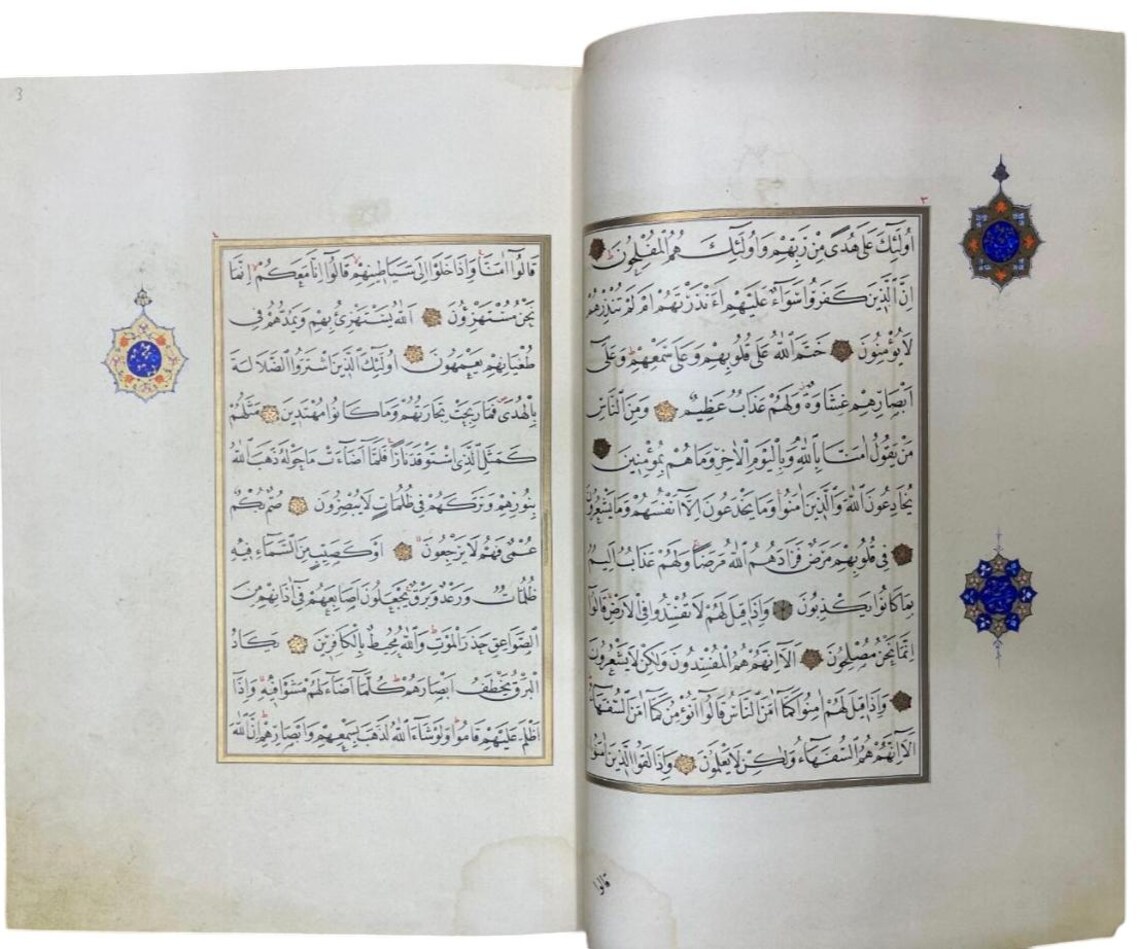 ٣
اُولٰٓئِكَ عَلٰى هُدًى مِنْ رَبِّهِمْ وَاُولٰٓئِكَ هُمُ الْمُفْلِحُونَ
اِنَّ الَّذِينَ كَفَرُوا سَوَٓاءٌ عَلَيْهِمْ ءَاَنْذَرْتَهُمْ اَمْ لَمْ تُنْذِرْهُمْ
لَا يُؤْمِنُونَ خَتَمَ اللّٰهُ عَلٰى قُلُوبِهِمْ وَعَلٰى سَمْعِهِمْ وَعَلٰٓى
اَبْصَارِهِمْ غِشَاوَةٌ وَلَهُمْ عَذَابٌ عَظِيمٌ وَمِنَ النَّاسِ
مَنْ يَقُولُ اٰمَنَّا بِاللّٰهِ وَبِالْيَوْمِ الْاٰخِرِ وَمَا هُمْ بِمُؤْمِنِينَ
يُخَادِعُونَ اللّٰهَ وَالَّذِينَ اٰمَنُوا وَمَا يَخْدَعُونَ اِلَّٓا اَنْفُسَهُمْ وَمَا يَشْعُرُونَ
فِي قُلُوبِهِمْ مَرَضٌ فَزَادَهُمُ اللّٰهُ مَرَضًا وَلَهُمْ عَذَابٌ اَلِيمٌ
بِمَا كَانُوا يَكْذِبُونَ وَاِذَا قِيلَ لَهُمْ لَا تُفْسِدُوا فِي الْاَرْضِ قَالُٓوا
اِنَّمَا نَحْنُ مُصْلِحُونَ اَلَٓا اِنَّهُمْ هُمُ الْمُفْسِدُونَ وَلٰكِنْ لَا يَشْعُرُونَ
وَاِذَا قِيلَ لَهُمْ اٰمِنُوا كَمَٓا اٰمَنَ النَّاسُ قَالُٓوا اَنُؤْمِنُ كَمَٓا اٰمَنَ السُّفَهَٓاءُ
اَلَٓا اِنَّهُمْ هُمُ السُّفَهَٓاءُ وَلٰكِنْ لَا يَعْلَمُونَ وَاِذَا لَقُوا الَّذِينَ اٰمَنُوا
قالوا
3
قَالُٓوا اٰمَنَّا وَاِذَا خَلَوْا اِلٰى شَيَاطِينِهِمْ قَالُٓوا اِنَّا مَعَكُمْ اِنَّمَا
نَحْنُ مُسْتَهْزِؤُنَ اَللّٰهُ يَسْتَهْزِئُ بِهِمْ وَيَمُدُّهُمْ فِي
طُغْيَانِهِمْ يَعْمَهُونَ اُولٰٓئِكَ الَّذِينَ اشْتَرَوُا الضَّلَالَةَ
بِالْهُدٰى فَمَا رَبِحَتْ تِجَارَتُهُمْ وَمَا كَانُوا مُهْتَدِينَ مَثَلُهُمْ
كَمَثَلِ الَّذِي اسْتَوْقَدَ نَارًا فَلَمَّٓا اَضَٓاءَتْ مَا حَوْلَهُ ذَهَبَ اللّٰهُ
بِنُورِهِمْ وَتَرَكَهُمْ فِي ظُلُمَاتٍ لَا يُبْصِرُونَ صُمٌّ بُكْمٌ
عُمْيٌ فَهُمْ لَا يَرْجِعُونَ اَوْ كَصَيِّبٍ مِنَ السَّمَٓاءِ فِيهِ
ظُلُمَاتٌ وَرَعْدٌ وَبَرْقٌ يَجْعَلُونَ اَصَابِعَهُمْ فِي اٰذَانِهِمْ مِنَ
الصَّوَاعِقِ حَذَرَ الْمَوْتِ وَاللّٰهُ مُحِيطٌ بِالْكَافِرِينَ يَكَادُ
الْبَرْقُ يَخْطَفُ اَبْصَارَهُمْ كُلَّمَٓا اَضَٓاءَ لَهُمْ مَشَوْا فِيهِ وَاِذَٓا
اَظْلَمَ عَلَيْهِمْ قَامُوا وَلَوْ شَٓاءَ اللّٰهُ لَذَهَبَ بِسَمْعِهِمْ وَاَبْصَارِهِمْ اِنَّ اللّٰهَ